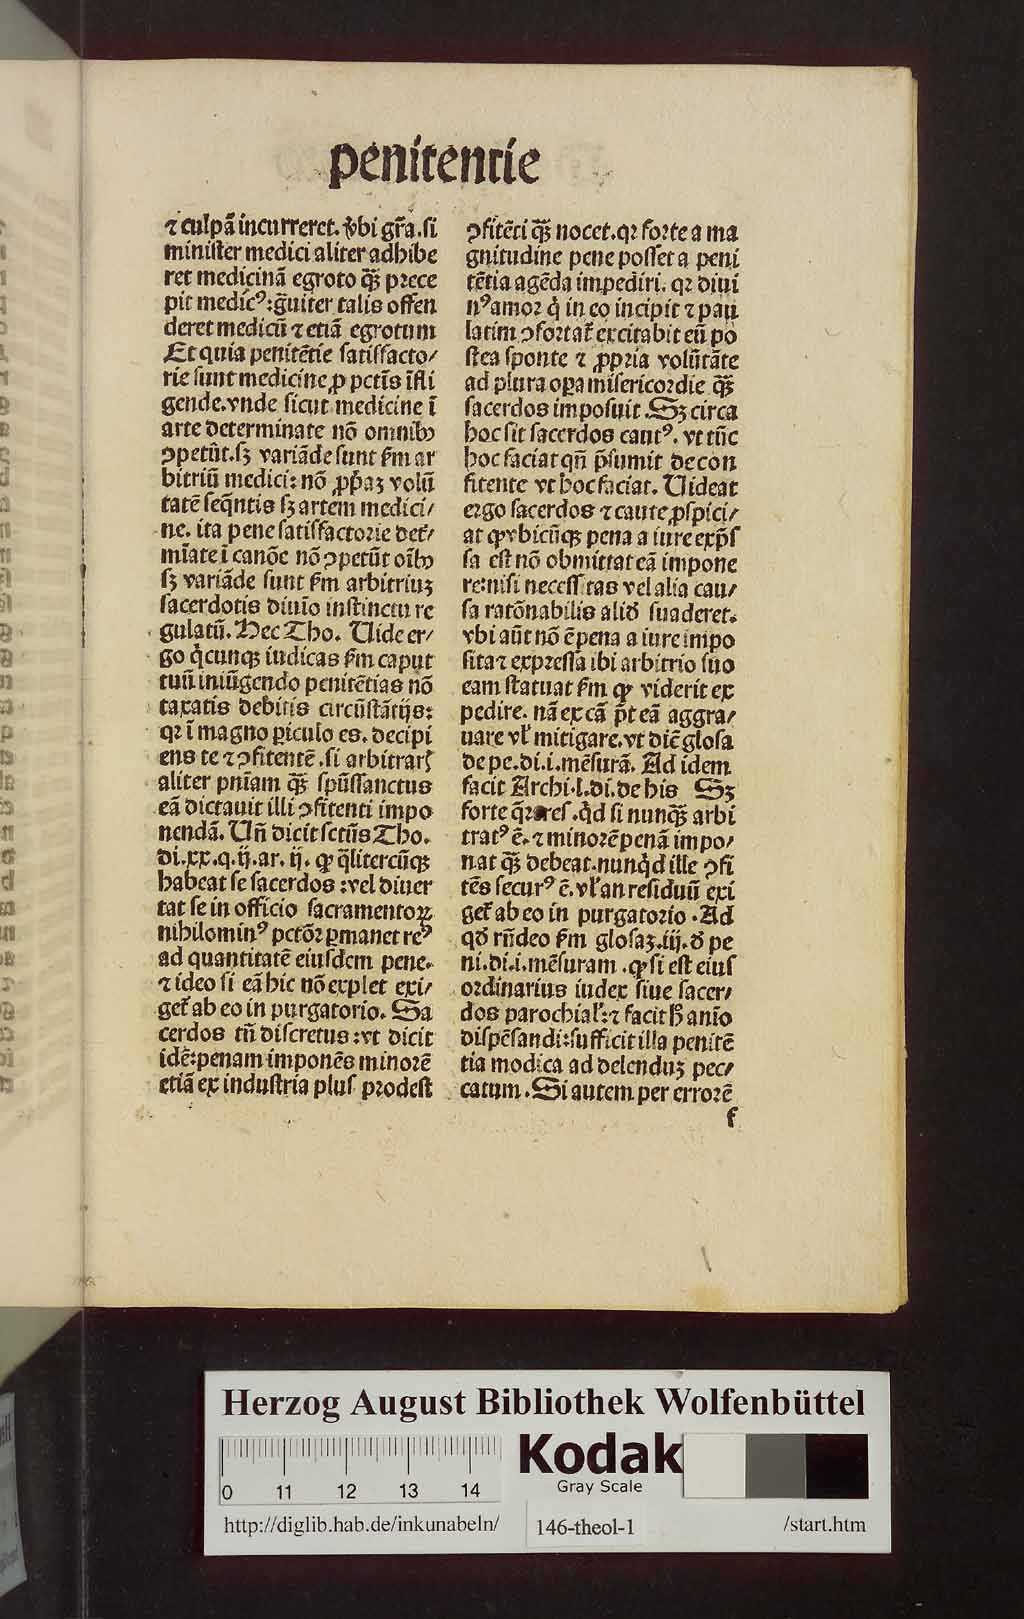 penitentie
⁊ culpā incurreret. v̄bi gr̄a. si
minister medici aliter adhibe
ret medicinā egroto qᷓꝫ prece
pit medicꝰ: g̃uiter talis offen
deret medicū ⁊ etiā egrotum
Et quia penitētie satisfacto⸗
rie sunt medicine ꝓ pctīs īfli
gende. vnde sicut medicine ī
arte determinate nō omnibꝫ
ꝯpetūt. sꝫ variāde sunt ẜm ar
bitriū medici: nō ꝓp̄aꝫ volū
tatē seq̄ntis sꝫ artem medici⸗
ne. ita pene satisfactorie det̄⸗
mīate ī canōe nō ꝯpetūt oībꝫ
sꝫ variāde sunt ẜm arbitriuꝫ
sacerdotis diuīo instinctu re
gulatū. Hec Tho. Uide er⸗
go q̇cunqꝫ iudicas ẜm caput
tuū iniūgendo penitētias nō
taxatis debitis circūstātijs:
qꝛ ī magno ꝑiculo es. decipi
ens te ⁊ ꝯfitentē. si arbitrarꝭ
aliter pnīam qᷓꝫ spūssanctus
eā dictauit illi ꝯfitenti impo
nendā. Uñ dicit sctūs Tho.
di.xx.q.ij.ar. ij. ꝙ q̄litercūqꝫ
habeat se sacerdos: vel diuer
tat se in officio sacramentoꝝ
nihilominꝰ pctōꝛ ꝑmanet reꝰ
ad quantitatē eiusdem pene.
⁊ ideo si eā hic nō explet exi⸗
get̄ ab eo in purgatorio. Sa
cerdos tñ discretus: vt dicit
idē: penam imponēs minorē
etiā ex industria plus prodest
ꝯfitēti qᷓꝫ nocet. qꝛ forte a ma
gnitudine pene posset a peni
tētia agēda impediri. qꝛ diui
nꝰ amor q̇ in eo incipit ⁊ pau
latim ꝯfortat̄ excitabit eū po
stea sponte ⁊ ꝓpria volūtāte
ad plura oꝑa misericordie qᷓꝫ
sacerdos imposuit. Sꝫ circa
hoc sit sacerdos cautꝰ. vt tūc
hoc faciat qñ p̄sumit de con
fitente vt hoc faciat. Uideat
ergo sacerdos ⁊ caute ꝓspici⸗
at ꝙ vbicūqꝫ pena a iure exp̄s
sa est nō obmittat eā impone
re: nisi necessitas vel alia cau⸗
sa ratōnabilis aliđ suaderet.
vbi aūt nō ē pena a iure impo
sita ⁊ expressa ibi arbitrio suo
eam statuat ẜm ꝙ viderit ex
pedire. nā ex cā p̄t eā aggra⸗
uare vł mitigare. vt dic̄ glosa
de pe.di.i.mēsurā. Ad idem
facit Archi.l.di.de his Sꝫ
forte q̄reres. q̇d si nunqᷓꝫ arbi
tratꝰ ē. ⁊ minorē penā impo⸗
nat qᷓꝫ debeat. nunq̇d ille ꝯfi
tēs securꝰ ē. vł an residuū exi
get̄ ab eo in purgatorio. Ad
qđ rñdeo ẜm glosaꝫ.iij. đ pe
ni.di.i.mēsuram. ꝙ si est eius
ordinarius iudex siue sacer⸗
dos parochiał: ⁊ facit ħ anīo
dispēsandi: sufficit illa penitē
tia modica ad delenduꝫ pec⸗
catum. Si autem per errorē
f
Herzog August Bibliothek Wolfenbüttel
0 11 12 13 14
Kodak
Gray Scale
http://diglib.hab.de/inkunabeln/ 146-theol-1 /start.htm